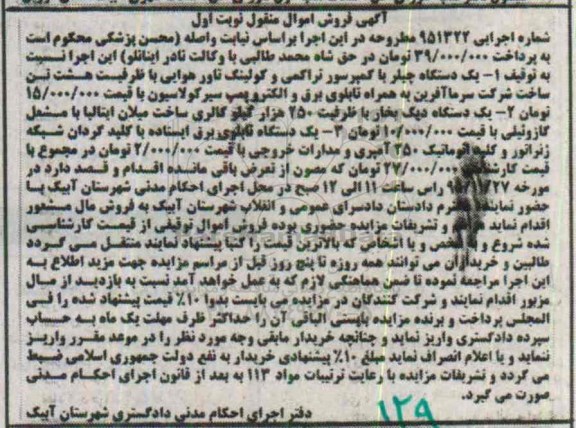 آگهی فروش اموال منقول نوبت اول
شماره اجرایی ۹۵۱۳۲۲ مطروحه در این اجرا براساس نیابت واصله (محسن پزشکی محکوم است
به پرداخت ۳۹/۰۰۰/۰۰۰ تومان در حق شاه محمد طالبی با وکالت نادر اینانلو) این اجرا نسبت
به توقیف ۱- یک دستگاه چیلر با کمپرسور تراکمی و کولینگ تاور هوایی با ظرفیت هشت تن
ساخت شرکت سرماآفرین به همراه تابلوی برق و الکتروپمپ سیرکولاسیون با قیمت ۱۵/۰۰۰/۰۰۰
تومان ۲- یک دستگاه دیگ بخار با ظرفیت ۲۵۰ هزار کیلو کالری ساخت میلان ایتالیا با مشعل
گازوئیلی با قیمت ۱۰/۰۰۰/۰۰۰ تومان ۳- یک دستگاه تابلوی برق ایستاده با کلید گردان شبکه
ژنراتور و کلید اتوماتیک ۲۵۰ آمپری و مدارات خروجی با قیمت ۲/۰۰۰/۰۰۰ تومان در مجموع با
قیمت کارشناسی ۲۷/۰۰۰/۰۰۰ تومان که مصون از تعرض باقی مانده اقدام و قصد دارد در
مورخه ۹۵/۱۱/۲۷ راس ساعت ۱۱ الی ۱۲ صبح در محل اجرای احکام مدنی شهرستان آبیک با
حضور نماینده محترم دادستان دادسرای عمومی و انقلاب شهرستان آبیک به فروش مال مشمور
اقدام نماید و تشریفات مزایده حضوری بوده فروش اموال توقیفی از قیمت کارشناسی
شده شروع و به شخص و یا اشخاص که بالاترین قیمت را کتبا پیشنهاد نمایند منتقل می گردد
طالبین و خریداران می توانند همه روزه تا پنج روز قبل از مراسم مزایده جهت مزید اطلاع به
این اجرا مراجعه نموده تا ضمن هماهنگی لازم که به عمل خواهد آمد نسبت به بازدید از مال
مزبور اقدام نمایند و شرکت کنندگان در مزایده می بایست بدوا ۱۰٪ قیمت پیشنهاد شده را فی
المجلس پرداخت و برنده مزایده بایستی الباقی آن را حداکثر ظرف مهلت یک ماه به حساب
سپرده دادگستری واریز نماید و چنانچه خریدار مابقی وجه مورد نظر را در موعد مقرر واریز
ننماید و یا اعلام انصراف نماید مبلغ ۱۰٪ پیشنهادی خریدار به نفع دولت جمهوری اسلامی ضبط
می گردد و تشریفات مزایده با رعایت ترتیبات مواد ۱۱۳ به بعد از قانون اجرای احکام مدنی
صورت می گیرد.
دفتر اجرای احکام مدنی دادگستری شهرستان آبیک
۱۲۹